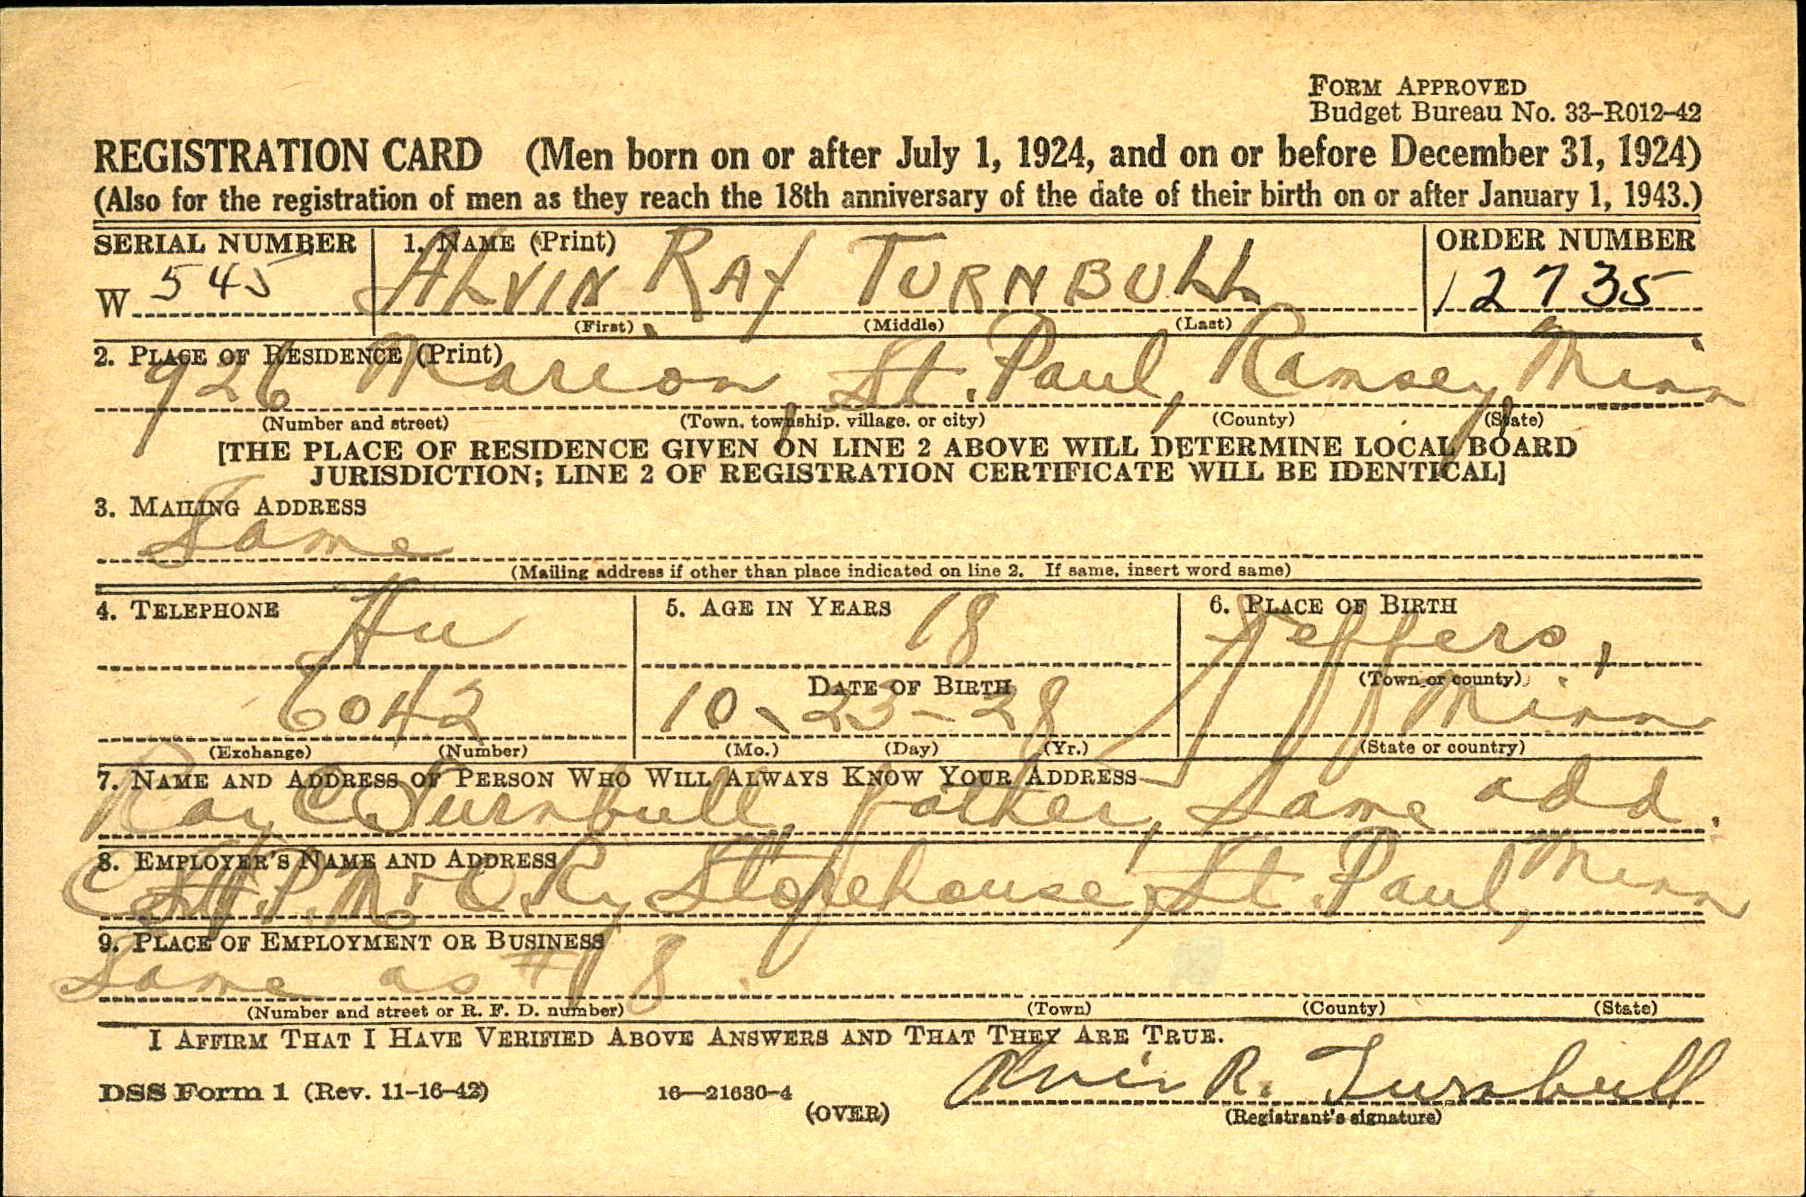 FORM APPROVED
Budget Bureau No. 33-R012-42
REGISTRATION CARD (Men born on or after July 1, 1924, and on or before December 31, 1924)
(Also for the registration of men as they reach the 18th anniversary of the date of their birth on or after January 1, 1943.)
SERIAL NUMBER 1. NAME (Print) ORDER NUMBER
W 545 ALVIN RAY TURNBULL 12735
(First) (Middle) (Last)
2. PLACE OF RESIDENCE (Print)
926 Marion, St. Paul, Ramsey, Minn
(Number and street) (Town, township, village, or city) (County) (State)
[THE PLACE OF RESIDENCE GIVEN ON LINE 2 ABOVE WILL DETERMINE LOCAL BOARD
JURISDICTION; LINE 2 OF REGISTRATION CERTIFICATE WILL BE IDENTICAL]
3. MAILING ADDRESS
Same
(Mailing address if other than place indicated on line 2. If same, insert word same)
4. TELEPHONE 5. AGE IN YEARS 6. PLACE OF BIRTH
Hu 18 Jeffers,
DATE OF BIRTH (Town or county)
6042 10-23-28 Minn
(Exchange) (Number) (Mo.) (Day) (Yr.) (State or country)
7. NAME AND ADDRESS OF PERSON WHO WILL ALWAYS KNOW YOUR ADDRESS
Ray C Turnbull, father, Same add.
8. EMPLOYER'S NAME AND ADDRESS
C St. P. M. & O. Ry Storehouse, St. Paul, Minn
9. PLACE OF EMPLOYMENT OR BUSINESS
Same as # 8.
(Number and street or R. F. D. number) (Town) (County) (State)
I AFFIRM THAT I HAVE VERIFIED ABOVE ANSWERS AND THAT THEY ARE TRUE.
DSS Form 1 (Rev. 11-16-42) 16-21630-4 (OVER) Alvin R. Turnbull
(Registrant's signature)